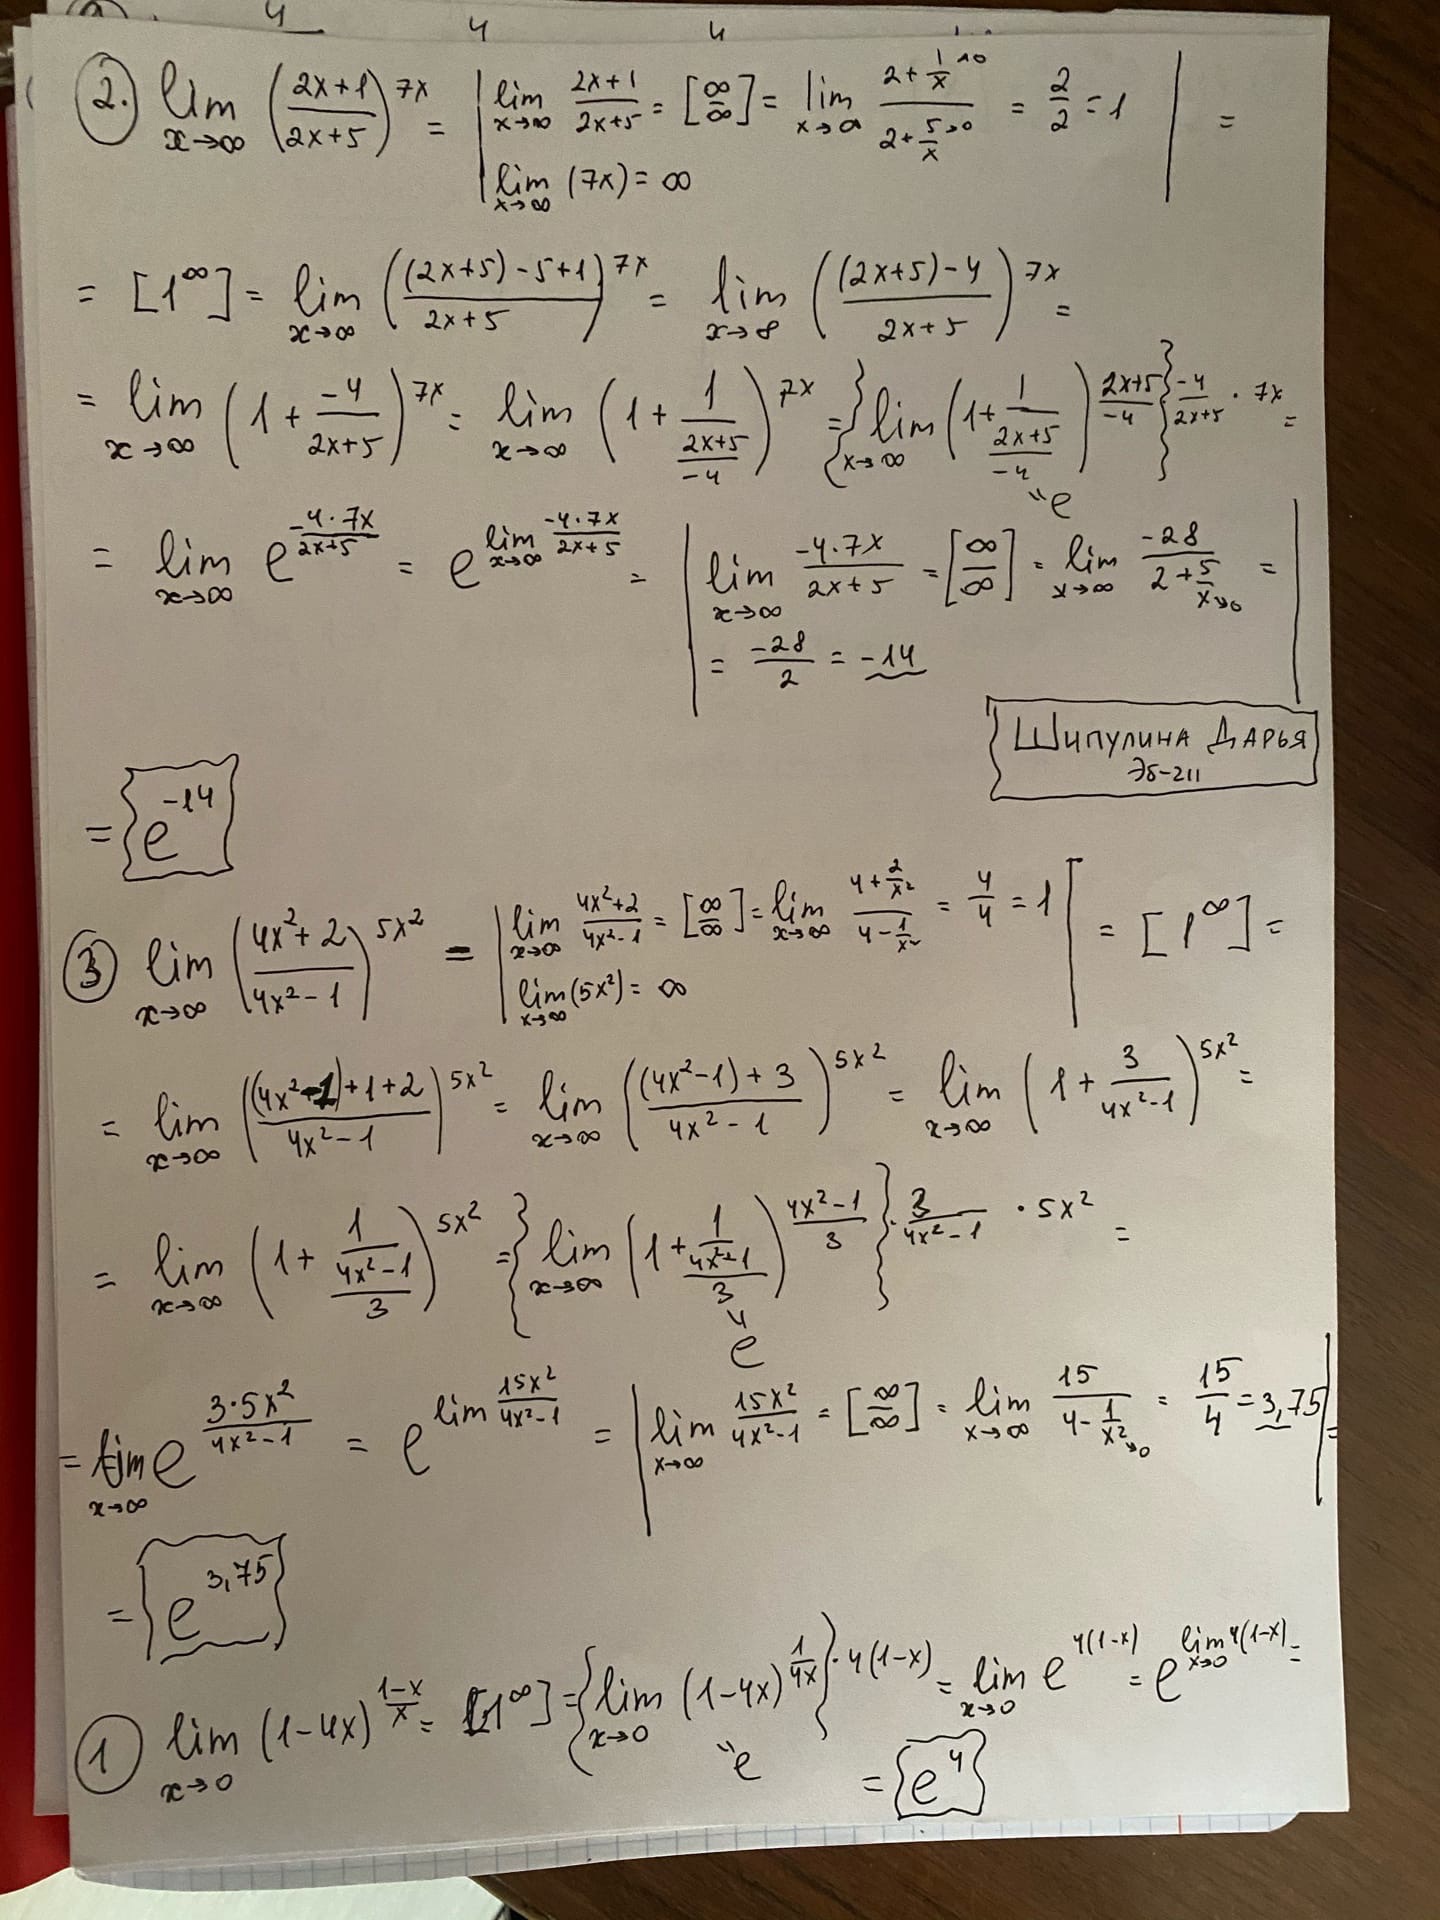 2. lim x→∞ ((2x+1)/(2x+5))^(7x) = | lim x→∞ (2x+1)/(2x+5) = [∞/∞] = lim x→∞ (2+1/x→0)/(2+5/x→0) = 2/2 = 1 | =
lim x→∞ (7x) = ∞
= [1^∞] = lim x→∞ (((2x+5)-5+1)/(2x+5))^(7x) = lim x→∞ (((2x+5)-4)/(2x+5))^(7x) =
= lim x→∞ (1 + -4/(2x+5))^(7x) = lim x→∞ (1 + 1/((2x+5)/-4))^(7x) = {lim x→∞ (1 + 1/((2x+5)/-4))^((2x+5)/-4)}^(-4/(2x+5) · 7x) =
"e
= lim x→∞ e^(-4·7x/(2x+5)) = e^(lim x→∞ -4·7x/(2x+5)) = | lim x→∞ -4·7x/(2x+5) = [∞/∞] = lim x→∞ -28/(2+5/x→0) = |
= -28/2 = -14
Шипулина Дарья
Эб-211
= e^(-14)
3 lim x→∞ ((4x²+2)/(4x²-1))^(5x²) = | lim x→∞ (4x²+2)/(4x²-1) = [∞/∞] = lim x→∞ (4+2/x²)/(4-1/x²) = 4/4 = 1 | = [1^∞] =
lim x→∞ (5x²) = ∞
= lim x→∞ (((4x²-1)+1+2)/(4x²-1))^(5x²) = lim x→∞ (((4x²-1)+3)/(4x²-1))^(5x²) = lim x→∞ (1 + 3/(4x²-1))^(5x²) =
= lim x→∞ (1 + 1/((4x²-1)/3))^(5x²) = {lim x→∞ (1 + 1/((4x²-1)/3))^((4x²-1)/3)}^(· 3/(4x²-1) · 5x²) =
"e
= lim x→∞ e^(3·5x²/(4x²-1)) = e^(lim 15x²/(4x²-1)) = | lim x→∞ 15x²/(4x²-1) = [∞/∞] = lim x→∞ 15/(4-1/x²→0) = 15/4 = 3,75 | =
= e^(3,75)
1 lim x→0 (1-4x)^((1-x)/x) = [1^∞] = {lim x→0 (1-4x)^(1/4x)}^(· 4(1-x)) = lim x→0 e^(4(1-x)) = e^(lim x→0 4(1-x)) =
"e
= e^4